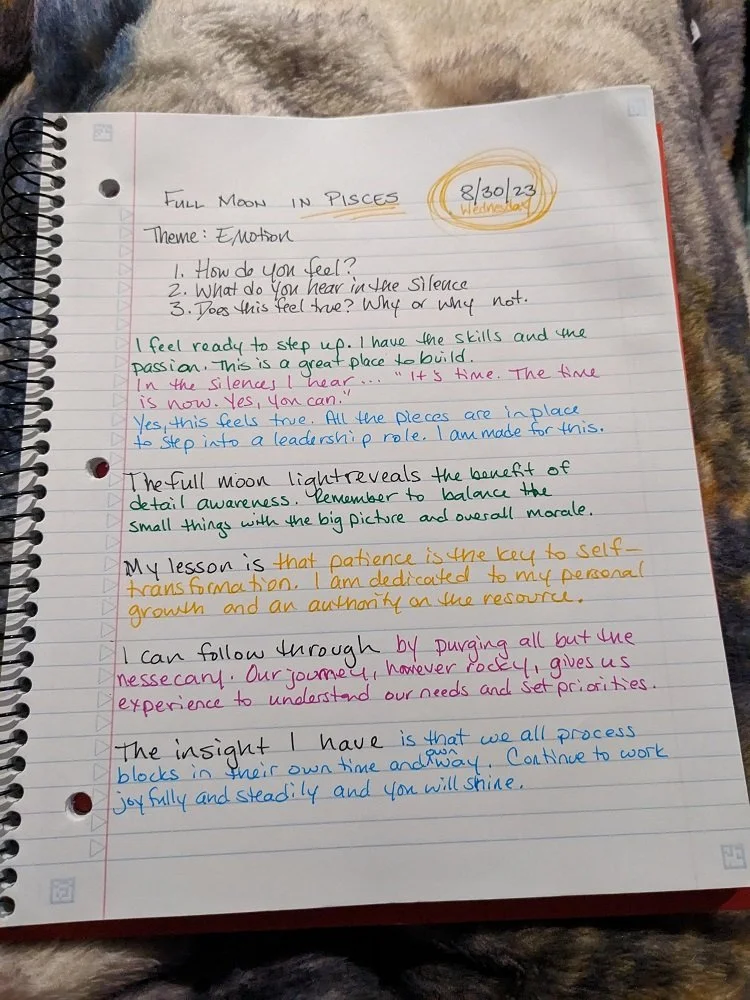 FULL MOON IN PISCES 8/30/23
Wednesday
Theme: EMotion
1. How do you feel?
2. What do you hear in the silence
3. Does this feel true? Why or why not.
I feel ready to step up. I have the skills and the
passion. This is a great place to build.
In the silences I hear... "It's time. The time
is now. Yes, you can."
Yes, this feels true. All the pieces are in place
to step into a leadership role. I am made for this.
The full moon light reveals the benefit of
detail awareness. Remember to balance the
small things with the big picture and overall morale.
My lesson is that patience is the key to self-
transformation. I am dedicated to my personal
growth and an authority on the resource.
I can follow through by purging all but the
nessecary. Our journey, however rocky, gives us
experience to understand our needs and set priorities.
The insight I have is that we all process
blocks in their own time and own way. Continue to work
joyfully and steadily and you will shine.